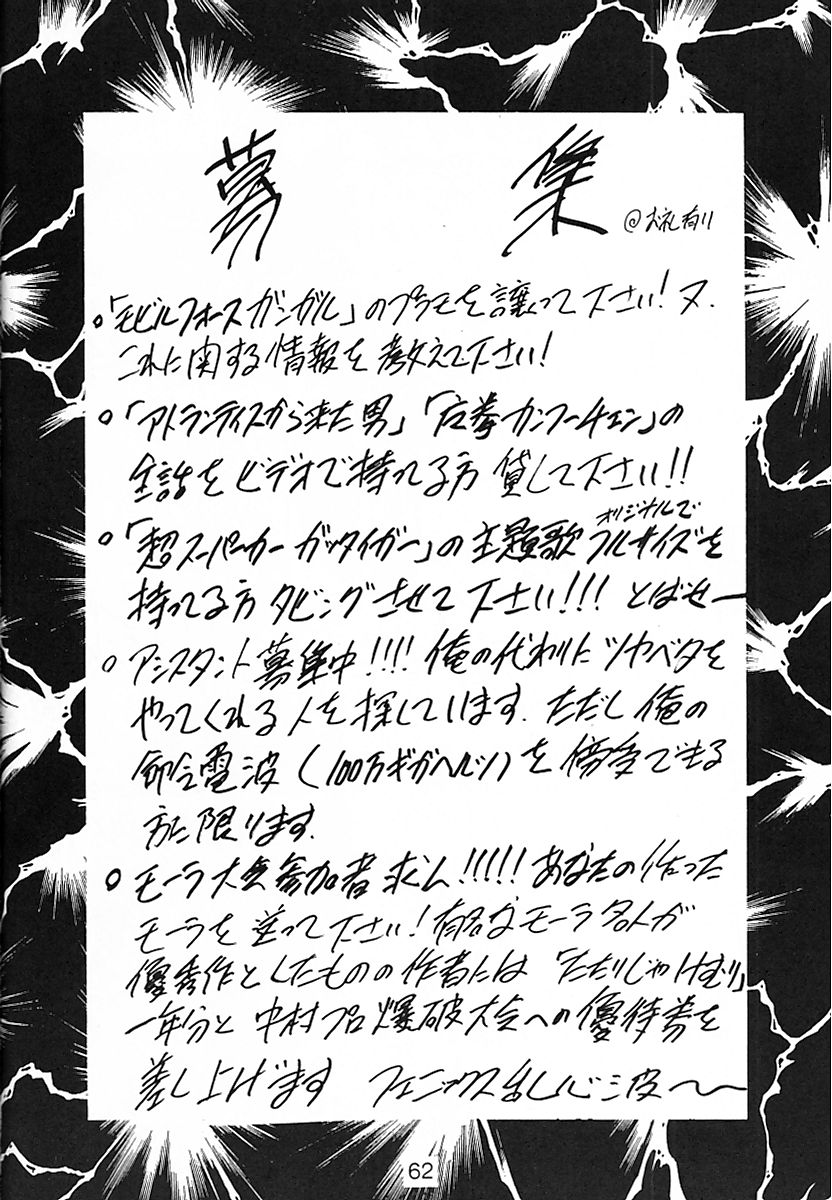 募集 @お礼有り
○「モビルフォースガンガル」のプラモを譲って下さい!又、
これに関する情報を教えて下さい!
○「アトランティスから来た男」「右拳カンフーチェン」の
全話をビデオで持ってる方貸して下さい!!
○「超スーパーカーガッタイガー」の主題歌オリジナルでフルサイズを
持ってる方ダビングさせて下さい!!! とばせー
○アシスタント募集中!!!! 俺の代わりにツヤベタを
やってくれる人を探しています。ただし俺の
命令電波(100万ギガヘルツ)を傍受できる
方に限ります。
○モーラ大会参加者求ム!!!!! あなたの作った
モーラを塗って下さい!有名なモーラ名人が
優秀作としたものの作者には「たたりじゃけむり」
一年分と中村プロ爆破大会への優待券を
差し上げます フェニックス乱心波〜〜
62